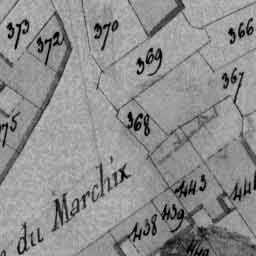 373
372
370
369
366
367
368
375
443
du Marchix
438
439